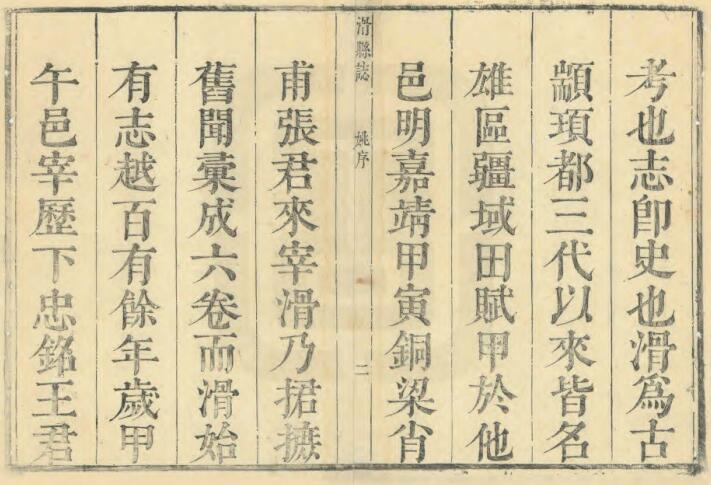 考也志卽史也滑爲古
顓頊都三代以來皆名
雄區疆域田賦甲於他
邑明嘉靖甲寅銅梁肖
滑縣誌 姚序 二
甫張君來宰滑乃捃摭
舊聞彙成六卷而滑始
有志越百有餘年歲甲
午邑宰歷下忠銘王君